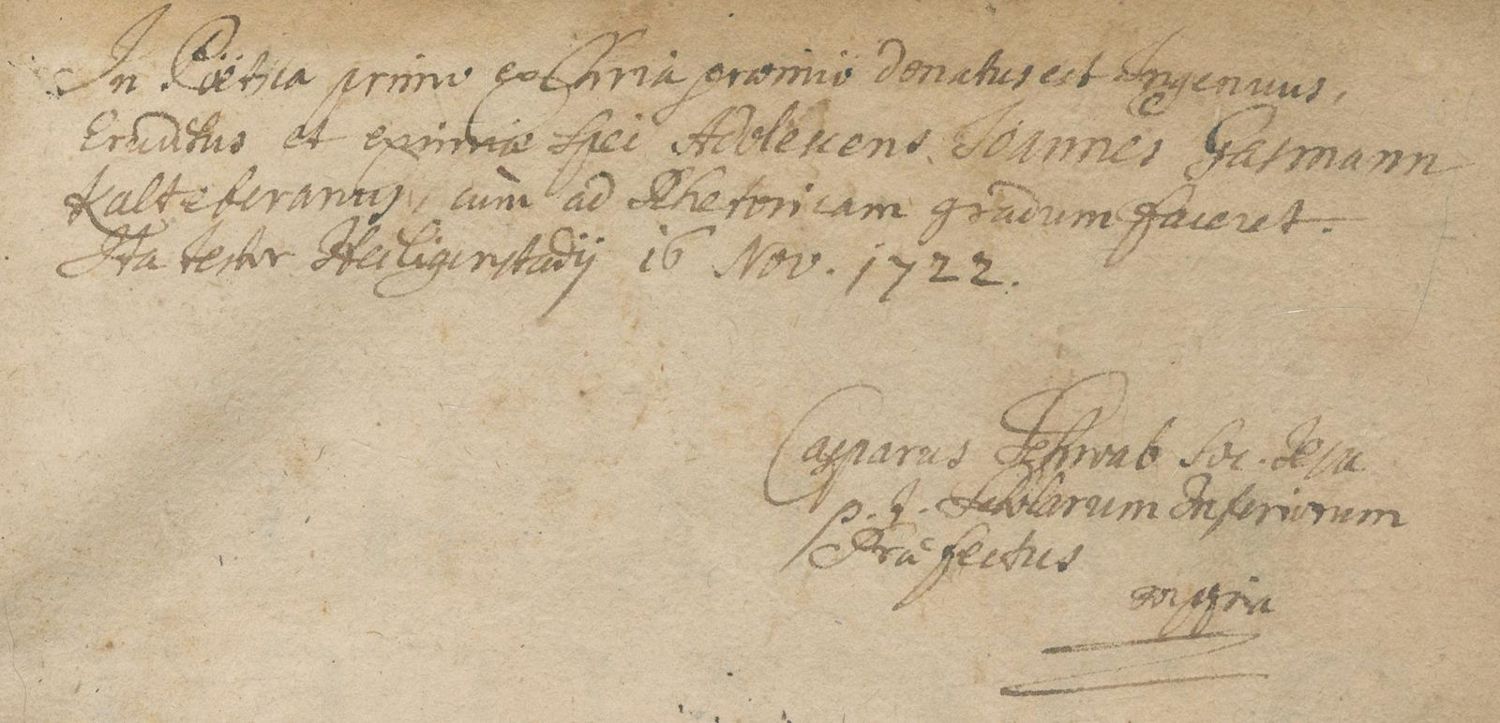 In Poëtica primo ex Chria præmio donatus est Ingenuus,
Eruditus et eximiæ spei Adolescens Joannes Gasmann
Kalteberanus, cum ad Rhetoricam gradum faceret.
Ita testor Heiligenstadij 16 Nov. 1722.
Casparus Schwab Soc. Jesu
p. t. Scholarum Inferiorum
Præfectus
mppria